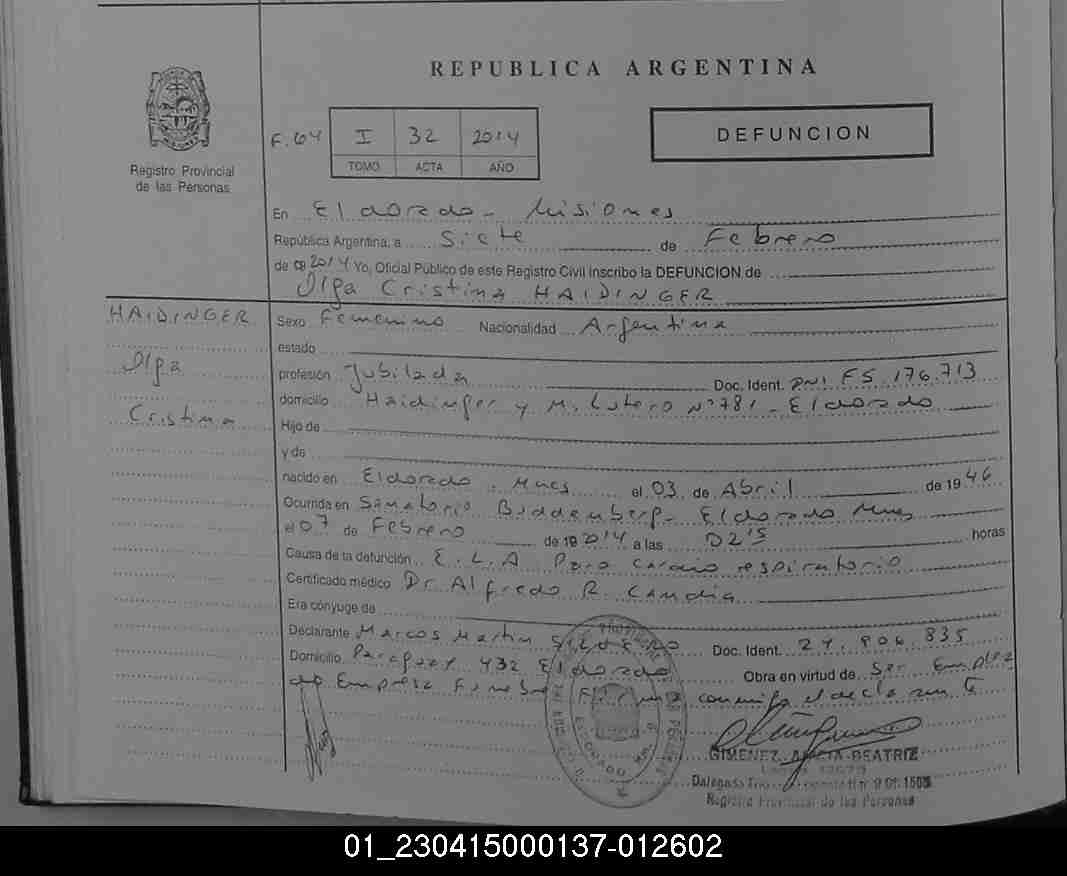 REPUBLICA ARGENTINA
Registro Provincial
de las Personas
F. 64 I 32 2014
TOMO ACTA AÑO
DEFUNCION
En Eldorado - Misiones
República Argentina, a Siete de Febrero
de 19 2014 Yo, Oficial Público de este Registro Civil inscribo la DEFUNCION de
Olga Cristina HAIDINGER
HAIDINGER
Olga
Cristina
Sexo Femenino Nacionalidad Argentina
estado
profesión Jubilada Doc. Ident. DNI F5.176.713
domicilio Haidinger y M. Lutero Nº 781 - Eldorado
Hijo de
y de
nacido en Eldorado - Mnes el 03 de Abril de 1946
Ocurrida en Sanatorio Eldorado Mnes
el 07 de Febrero de 19 2014 a las 02'5 horas
Causa de la defunción E.L.A Paro cardio respiratorio
Certificado médico Dr. Alfredo R. Candia
Era cónyuge de
Declarante Marcos Martin Doc. Ident. 24.906.835
Domicilio Paraguay 432 Eldorado Obra en virtud de Ser Emplea
do Empresa Funebre Firma conmigo el declarante
GIMENEZ, ALICIA BEATRIZ
Registro Provincial de las Personas
01_230415000137-012602